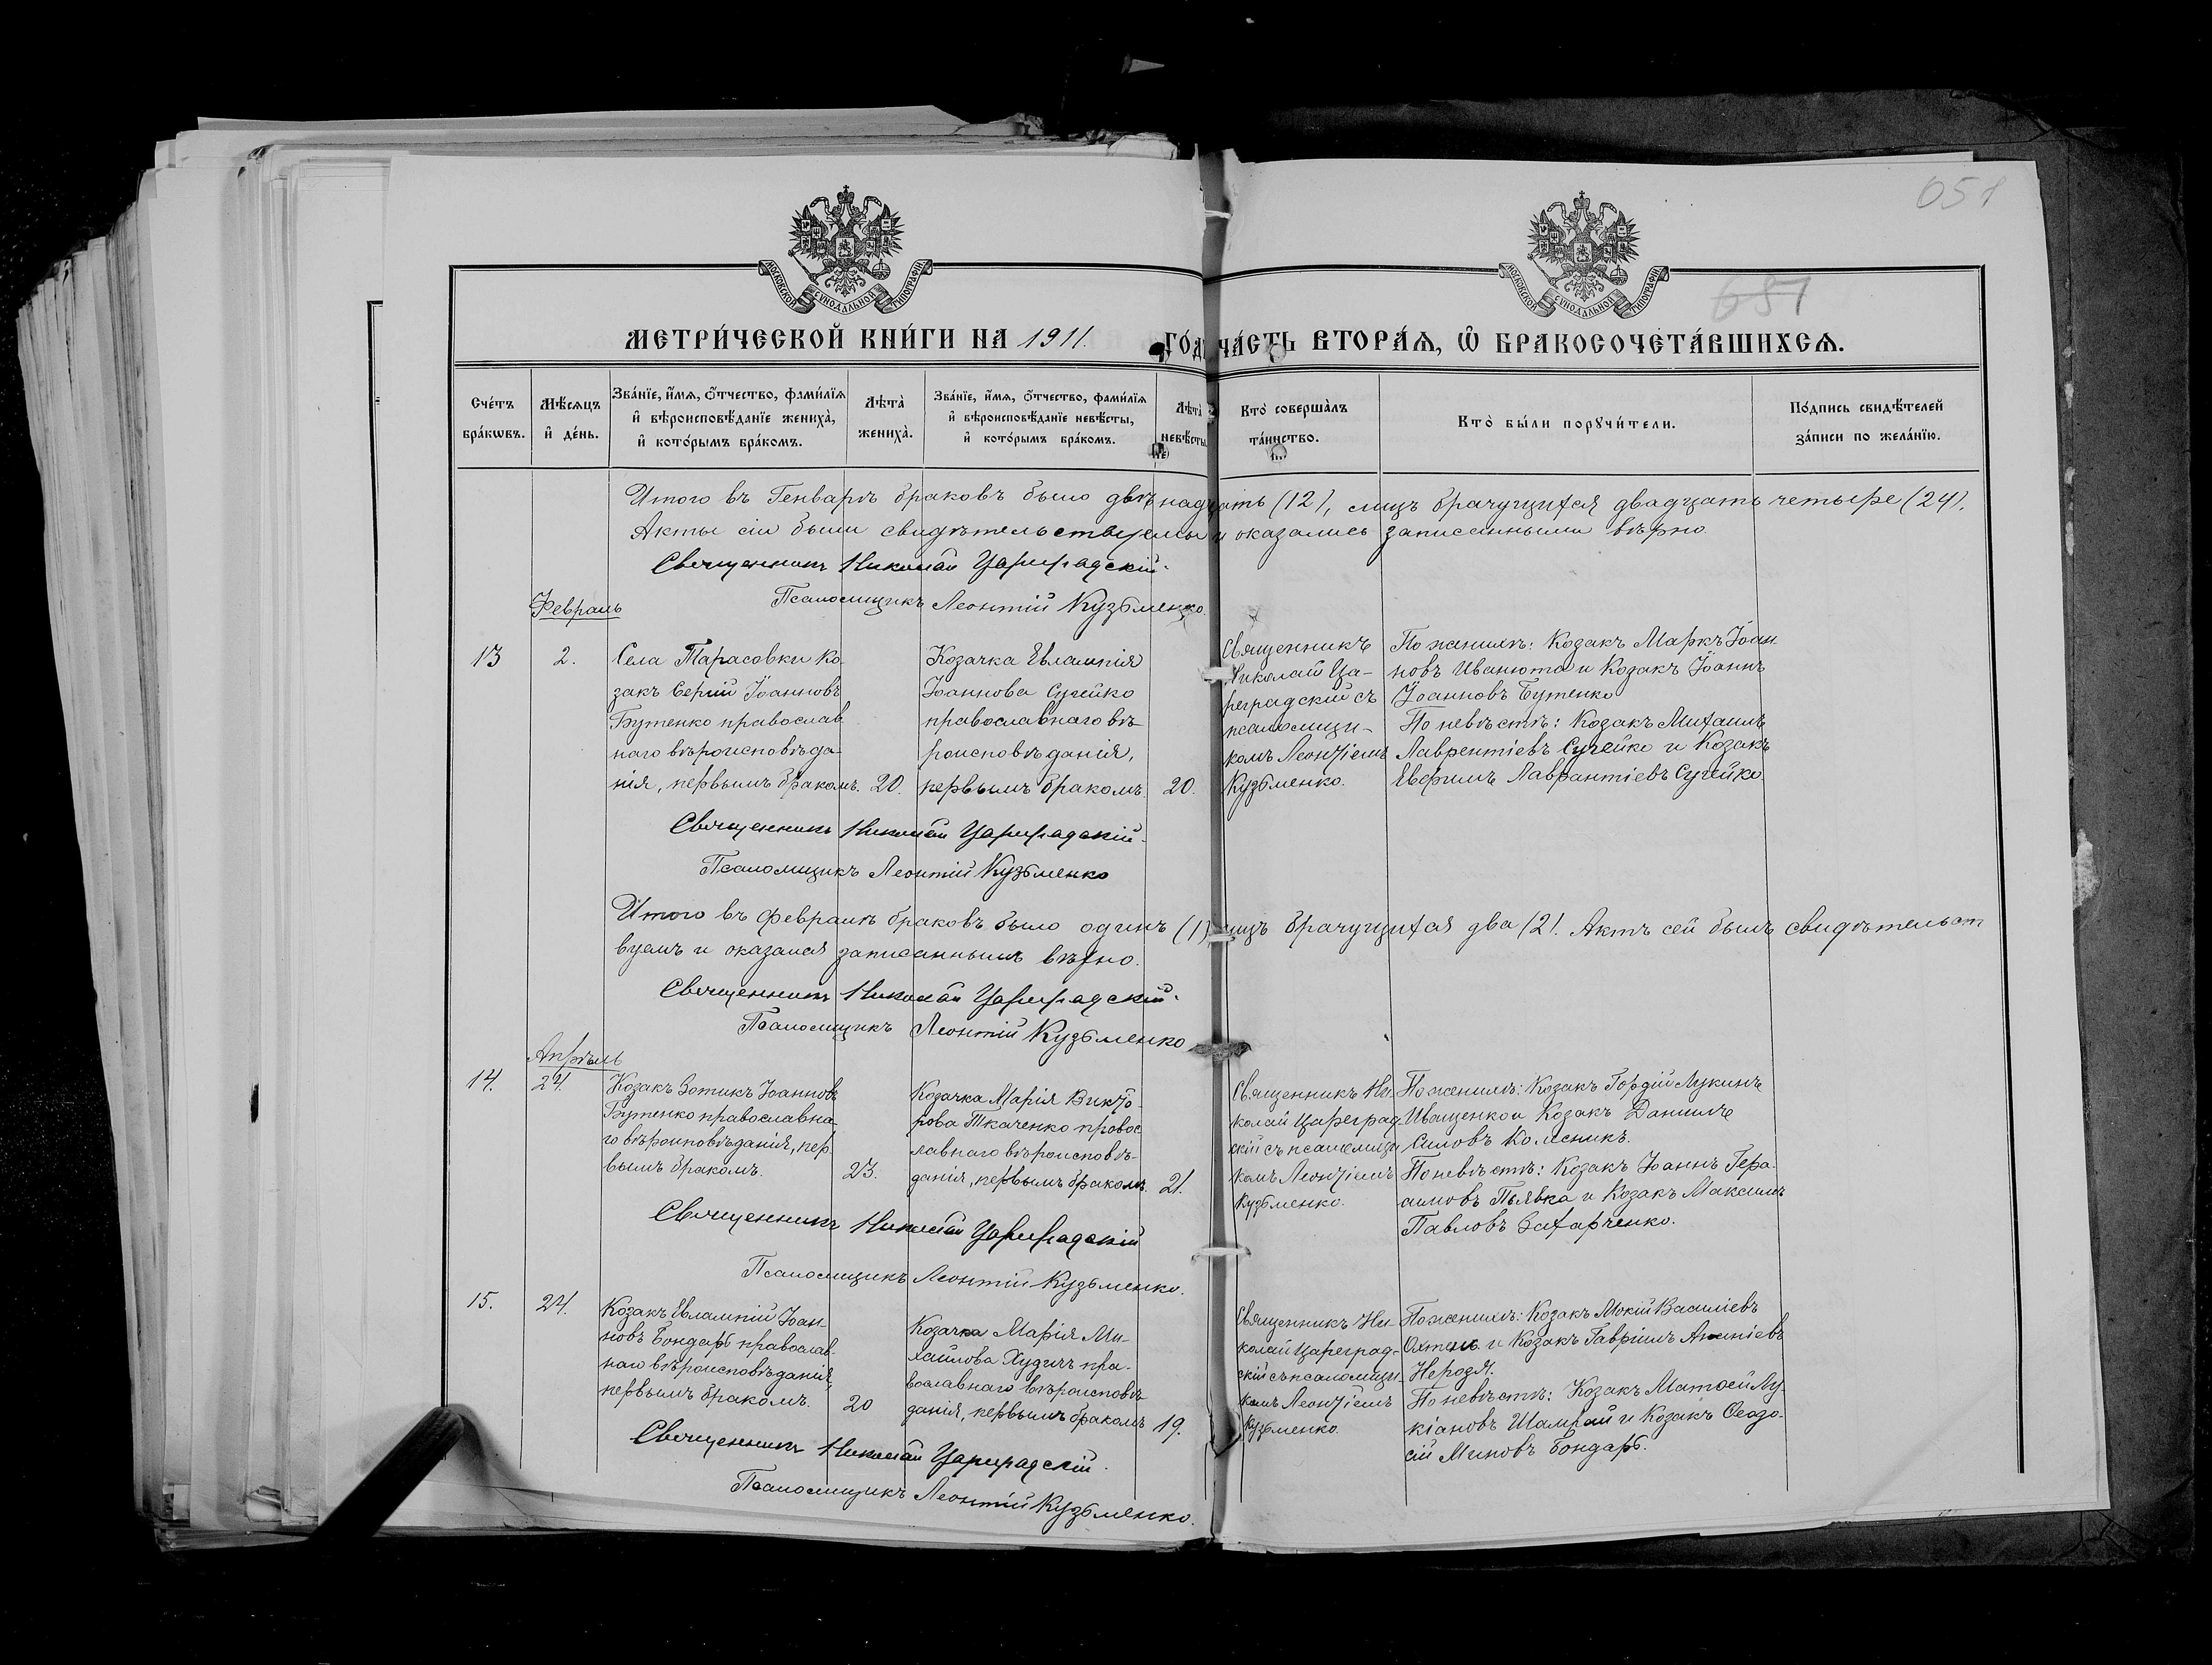 051
651
МОСКОВСКОЙ СУНОДАЛЬНОЙ ТИПОГРАФІИ
МОСКОВСКОЙ СУНОДАЛЬНОЙ ТИПОГРАФІИ
МЕТРИ́ЧЕСКОЙ КНИ́ГИ НА 1911. ГО́ДЪ ЧА́СТЬ ВТОРА́Ѧ, Ѡ҆ БРАКОСОЧЕТА́ВШИХСѦ.
Сче́тъ бра́кѡвъ.
Мѣ́сѧцъ и҆ де́нь.
Зва́нїе, и҆́мѧ, ѻ҆́тчество, фами́лїѧ
и҆ вѣроисповѣ́данїе жениха̀,
и҆ кото́рымъ бра́комъ.
Лѣта̀ жениха̀.
Зва́нїе, и҆́мѧ, ѻ҆́тчество, фами́лїѧ
и҆ вѣроисповѣ́данїе невѣ́сты,
и҆ кото́рымъ бра́комъ.
Лѣта̀ невѣ́сты.
Кто̀ соверша̀лъ
та́инство.
Кто̀ бы́ли порꙋчи́тели.
По́дпись свидѣ́телей
за́писи по жела́нїю.
Итого въ Генварѣ браковъ было двѣнадцать (12), лицъ брачущихся двадцать четыре (24).
Акты сіи были свидѣтельствуемы и оказались записанными вѣрно.
Священникъ Николай Цареградскій.
Псаломщикъ Леонтій Кузьменко.
Февраль
13
2.
Села Тарасовки ко-
закъ Сергій Іоанновъ
Бутенко православ
наго вѣроисповѣда-
нія, первымъ бракомъ.
20.
Козачка Евлампія
Іоаннова Сугейко
православнаго вѣ-
роисповѣданія,
первымъ бракомъ.
20.
Священникъ
Николай Ца-
реградскій съ
псаломщи-
комъ Леонтіемъ
Кузьменко.
По женихѣ: Козакъ Маркъ Іоан-
новъ Иванюта и Козакъ Іоаннъ
Іоанновъ Бутенко
По невѣстѣ: Козакъ Михаилъ
Лаврентіевъ Сугейко и Козакъ
Евфимъ Лаврантіевъ Сугейко
Священникъ Николай Цареградскій.
Псаломщикъ Леонтій Кузьменко
Итого въ Февралѣ браковъ было одинъ (1), лицъ брачущихся два (2). Актъ сей былъ свидѣтельст
вуемъ и оказался записаннымъ вѣрно.
Священникъ Николай Цареградскій.
Псаломщикъ Леонтій Кузьменко
Апрѣль
14.
24.
Козакъ Зотикъ Іоанновъ
Бутенко православна-
го вѣроиповѣданія, пер-
вымъ бракомъ.
23.
Козачка Марія Викто-
рова Ткаченко провос
лавнаго вѣроисповѣ-
данія, первымъ бракомъ.
21.
Священникъ Ни-
колай Цареград-
скій съ псаломщи
комъ Леонтіемъ
Кузьменко.
По женихѣ: Козакъ Гордій Лукинъ
Иващенко и Козакъ Даниилъ
Силовъ Колесникъ.
По невѣстѣ: Козакъ Іоаннъ Гера-
симовъ Пьявка и Козакъ Максимъ
Павловъ Захарченко.
Священникъ Николай Цареградскій
Псаломщикъ Леонтій Кузьменко.
15.
24.
Козакъ Евлампій Іоан-
новъ Бондарь православ-
наго вѣроисповѣданія,
первымъ бракомъ.
20
Козачка Марія Ми-
хаилова Худичъ пра-
вославнаго вѣроисповѣ-
данія, первымъ бракомъ
19.
Священникъ Ни-
колай Цареград-
скій съ псаломщи-
комъ Леонтіемъ
Кузьменко.
По женихѣ: Козакъ Мокій Василіевъ
и Козакъ Гавріилъ Ананіевъ
Негода.
По невѣстѣ: Козакъ Матѳей Лу-
кіановъ Шамрай и Козакъ Ѳеодо-
сій Миновъ Бондарь.
Священникъ Николай Цареградскій.
Псаломщикъ Леонтій Кузьменко.